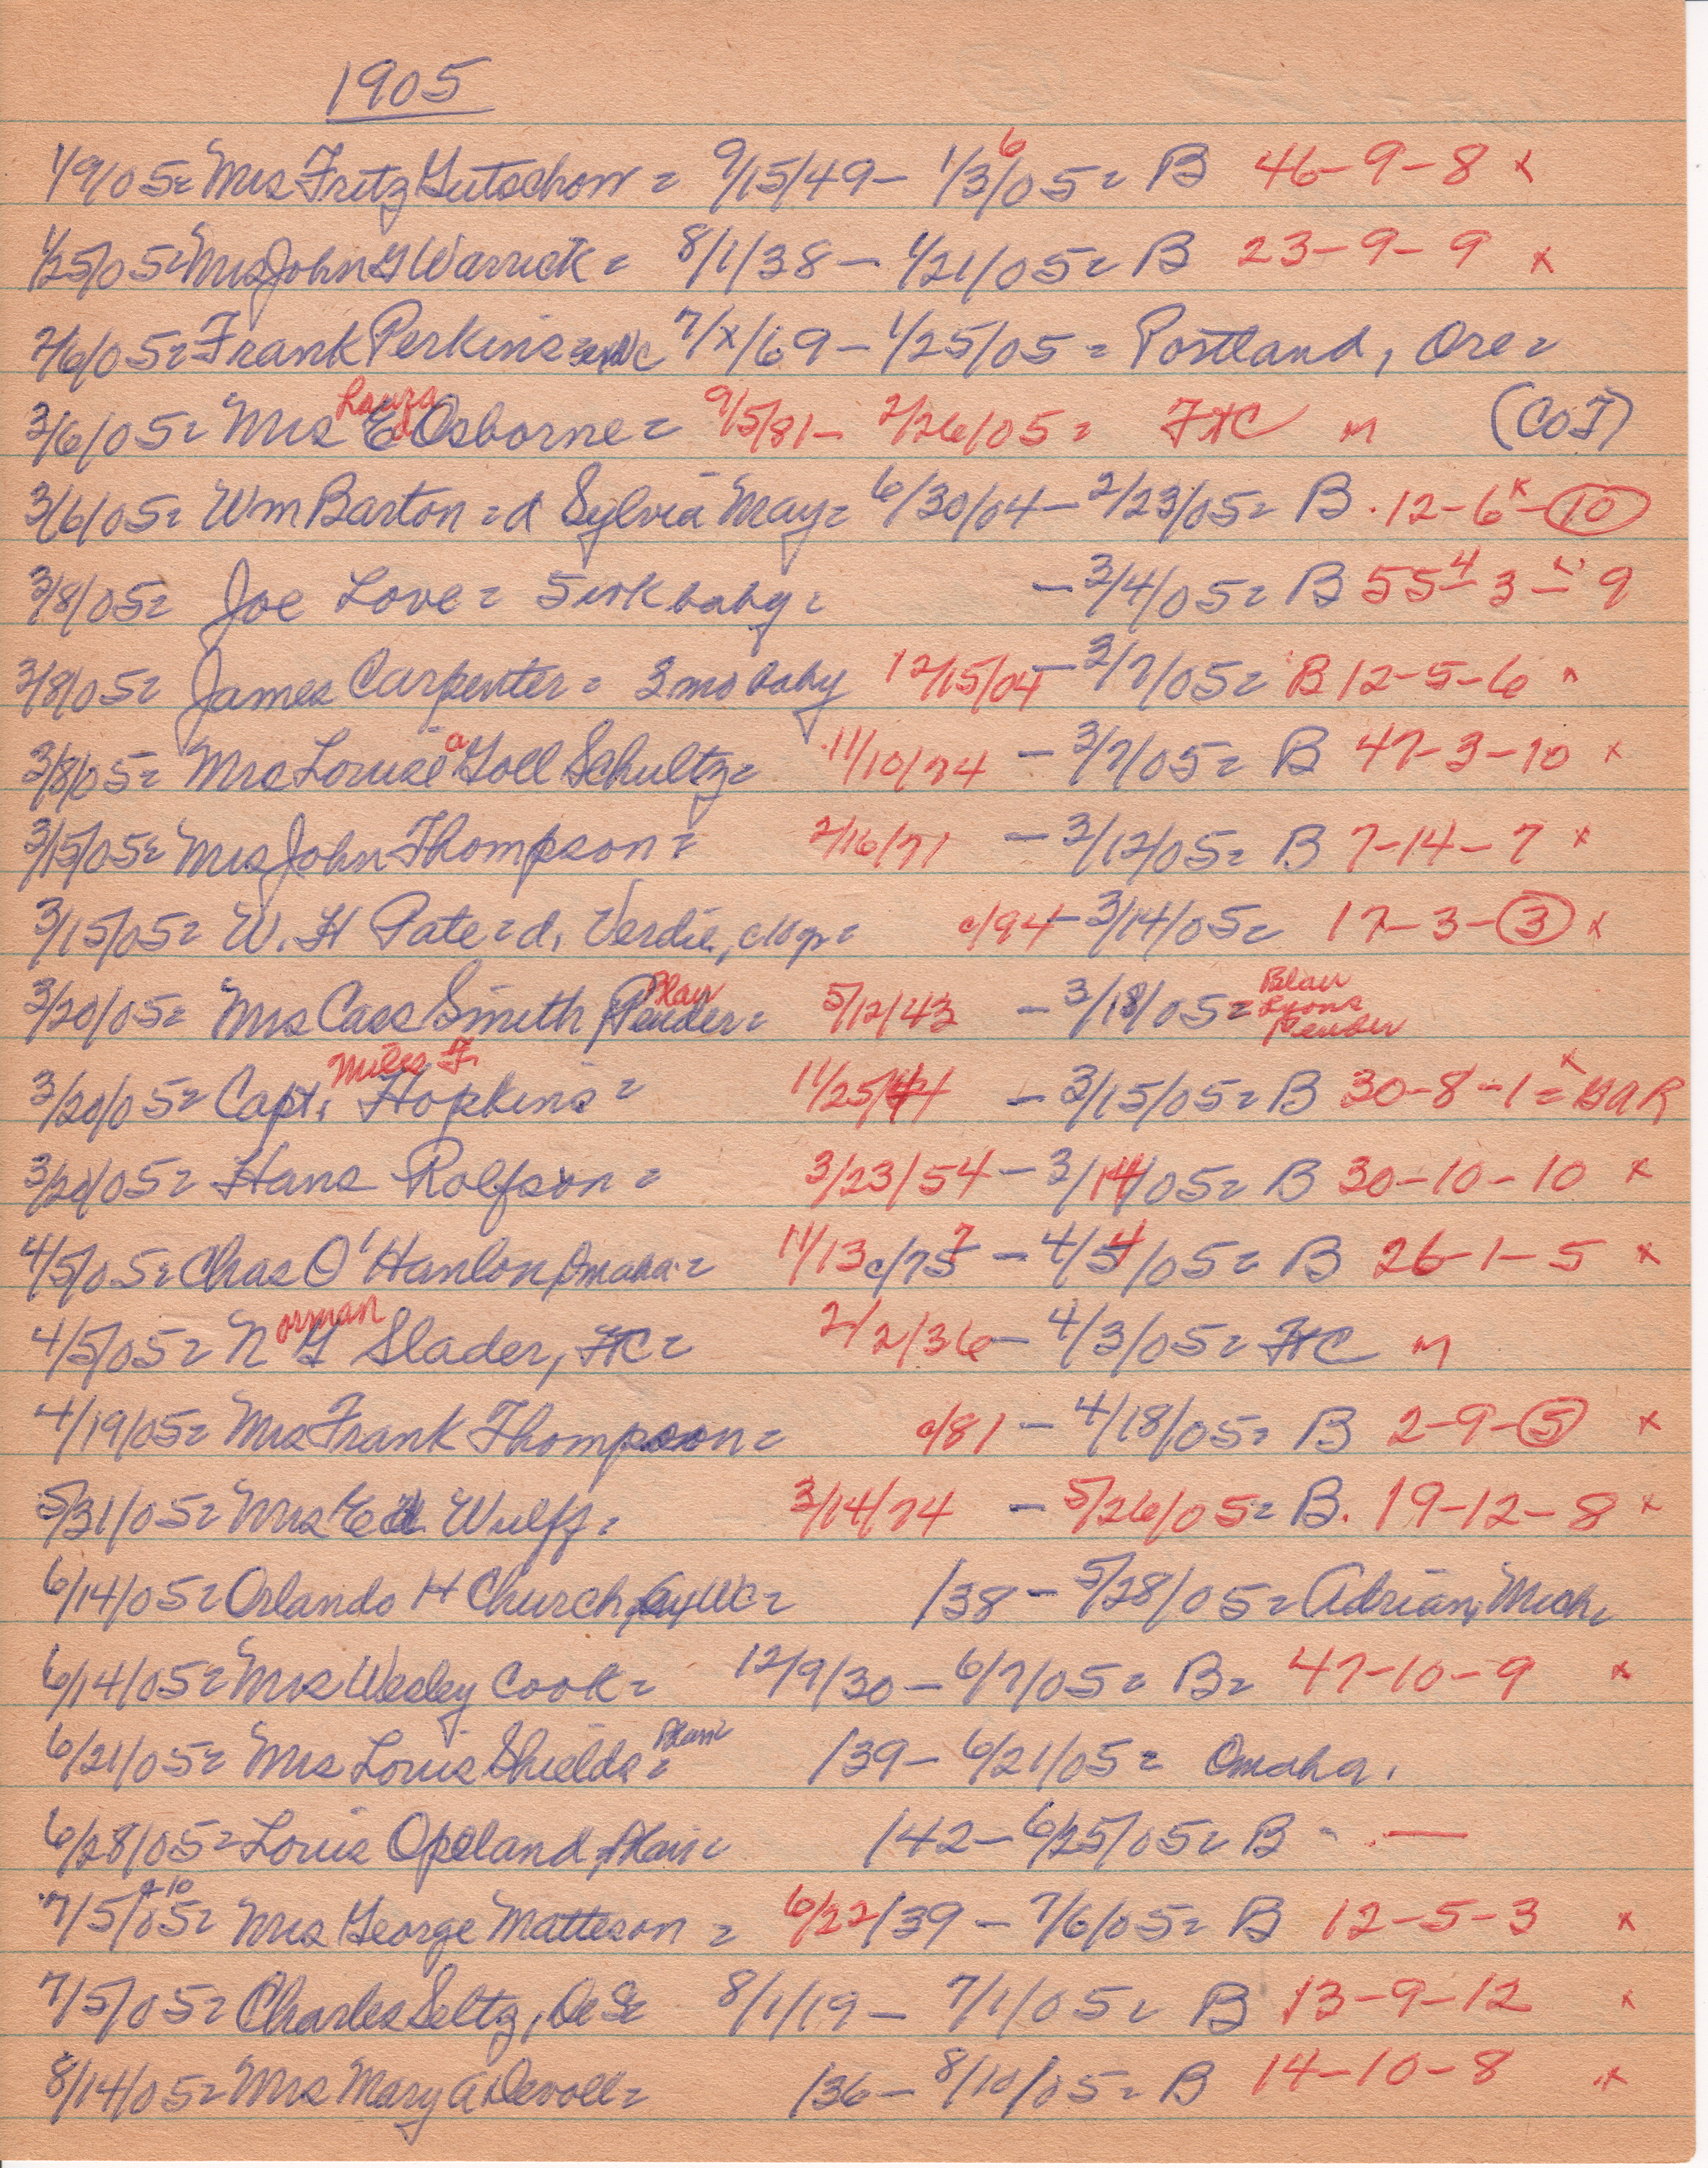 1905
1/9/05= Mrs Fritz Gutschow = 9/15/49 - 1/3/05= B 46-9-8 x
6
1/25/05= Mrs John G Warrick = 8/1/38 - 1/21/05= B 23-9-9 x
2/6/05= Frank Perkins = 7/x/69 - 1/25/05 = Portland, Ore =
Laura
3/6/05= Mrs Ed Osborne = 9/5/81 - 2/26/05 = FtC m (CoJ)
3/6/05= Wm Barton = d Sylvia May= 6/30/04 - 2/23/05= B 12-6-10 x
3/8/05= Joe Love = 5 wk baby = - 3/4/05= B 55-3-9
4
3/8/05= James Carpenter = 3 mo baby 12/15/04 - 3/7/05= B 12-5-6 x
a
3/8/05= Mrs Louise Goll Schultz= 11/10/74 - 3/7/05= B 47-3-10 x
3/15/05= Mrs John Thompson = 2/16/71 - 3/12/05= B 7-14-7 x
3/15/05= W. H Pate = d, Verdie, c10yr = c/94 - 3/14/05= 17-3-3 x
Blair
3/20/05= Mrs Cass Smith Pender= 5/12/43 - 3/18/05= Blair
Lyons
Pender
Miles F.
3/20/05= Capt. Hopkins = 11/25/41 - 3/15/05= B 30-8-1= x GAR
3/20/05= Hans Rolfson = 3/23/54 - 3/14/05= B 30-10-10 x
4/5/05= Chas O'Hanlon Omaha = 11/13 c/75 - 4/5/05= B 26-1-5 x
7 4
orman
4/5/05= N G Slader, FtC = 2/2/36 - 4/3/05= FtC m
4/19/05= Mrs Frank Thompson = c/81 - 4/18/05= B 2-9-5 x
5/31/05= Mrs Ed Wulff = 3/14/74 - 5/26/05= B. 19-12-8 x
6/14/05= Orlando H Church, = /38 - 5/28/05= Adrian, Mich=
6/14/05= Mrs Wesley Cook = 12/9/30 - 6/7/05= B= 47-10-9 x
6/21/05= Mrs Louis Shields = Blair /39 - 6/21/05= Omaha.
6/28/05= Louis Opeland, Blair = /42 - 6/25/05= B - —
+ 10
7/5/05= Mrs George Matteson = 6/22/39 - 7/6/05= B 12-5-3 x
7/5/05= Charles Seltz, De So 8/1/19 - 7/1/05= B 13-9-12 x
8/14/05= Mrs Mary A Devoll= /36 - 8/10/05= B 14-10-8 x